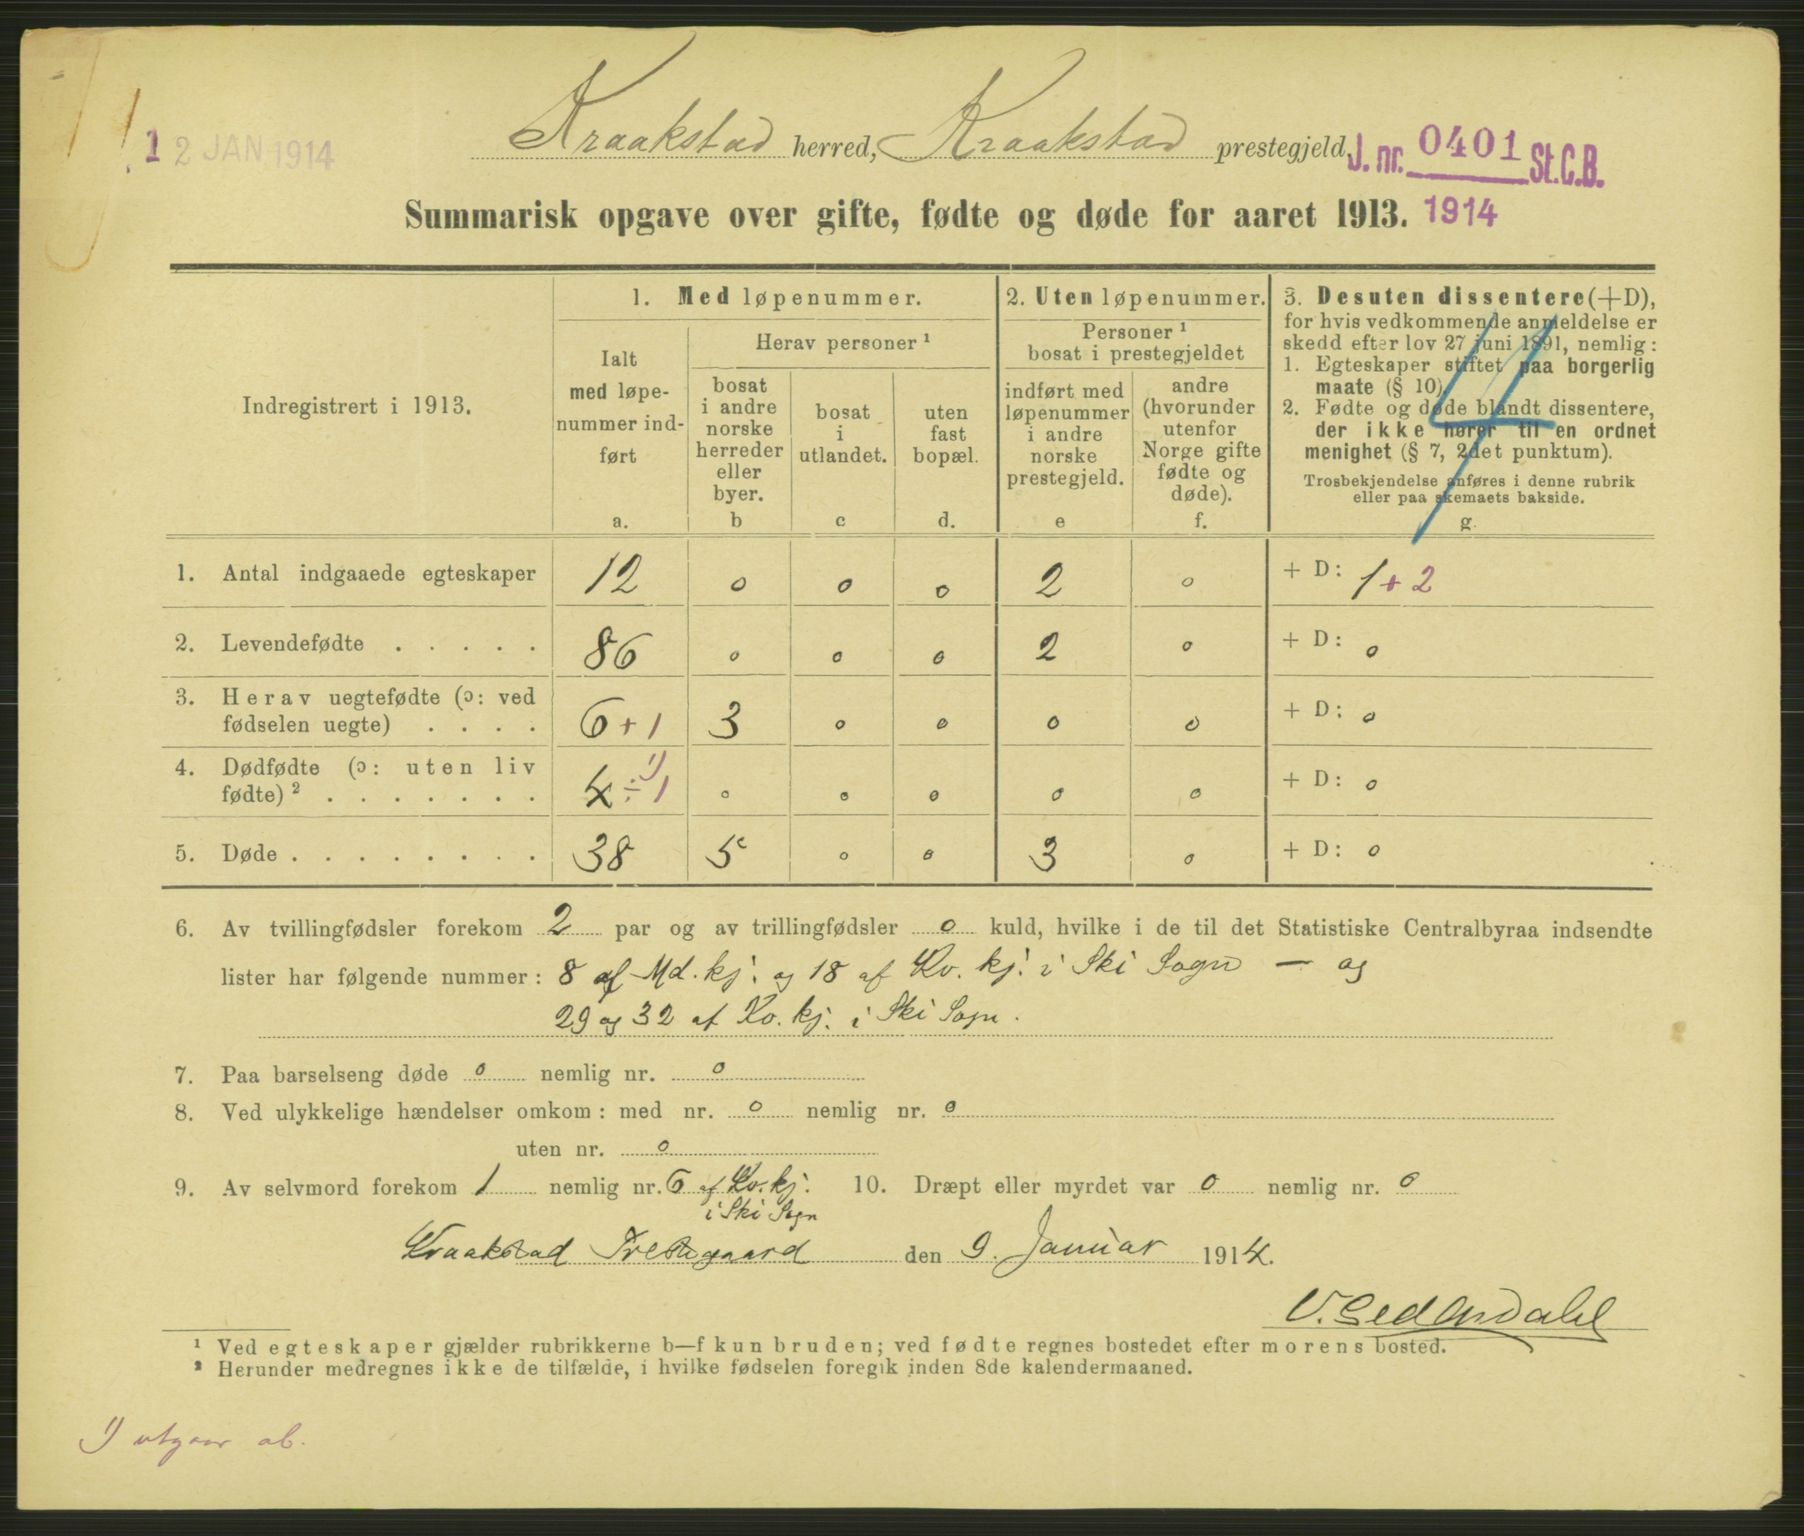 12 JAN 1914
Kraakstad herred, Kraakstad prestegjeld.
J. nr. 0401 St.C.B.
Summarisk opgave over gifte, fødte og døde for aaret 1913. 1914
Indregistrert i 1913.
1. Med løpenummer.
Ialt
med løpe-
nummer ind-
ført
a.
Herav personer ¹
bosat
i andre
norske
herreder
eller
byer.
b
bosat
i
utlandet.
c
uten
fast
bopæl.
d.
2. Uten løpenummer.
Personer ¹
bosat i prestegjeldet
indført med
løpenummer
i andre
norske
prestegjeld.
e
andre
(hvorunder
utenfor
Norge gifte
fødte og
døde).
f.
3. Desuten dissentere (+D),
for hvis vedkommende anmeldelse er
skedd efter lov 27 juni 1891, nemlig:
1. Egteskaper stiftet paa borgerlig
maate (§ 10)
2. Fødte og døde blandt dissentere,
der ikke hører til en ordnet
menighet (§ 7, 2det punktum).
Trosbekjendelse anføres i denne rubrik
eller paa skemaets bakside.
g.
4
1. Antal indgaaede egteskaper 12 0 0 0 2 0 + D: 1 + 2
2. Levendefødte . . . . . 86 0 0 0 2 0 + D: 0
3. Herav uegtefødte (ɔ: ved
fødselen uegte) . . . . 6 + 1 3 0 0 0 0 + D: 0
4. Dødfødte (ɔ: uten liv
fødte) ² . . . . . . . 4 ÷ 1 ¹) 0 0 0 0 0 + D: 0
5. Døde . . . . . . . . 38 5 0 0 3 0 + D: 0
6. Av tvillingfødsler forekom 2 par og av trillingfødsler 0 kuld, hvilke i de til det Statistiske Centralbyraa indsendte
lister har følgende nummer: 8 af Md. kj. og 18 af Kv. kj. i Ski Sogn — og
29 og 32 af Kv. kj. i Ski Sogn.
7. Paa barselseng døde 0 nemlig nr. 0
8. Ved ulykkelige hændelser omkom: med nr. 0 nemlig nr. 0
uten nr. 0
9. Av selvmord forekom 1 nemlig nr. 6 af Kv. kj. 10. Dræpt eller myrdet var 0 nemlig nr. 0
i Ski Sogn
Kraakstad Prestegaard den 9. Januar 1914.
¹ Ved egteskaper gjælder rubrikkerne b—f kun bruden; ved fødte regnes bostedet efter morens bosted.
² Herunder medregnes ikke de tilfælde, i hvilke fødselen foregik inden 8de kalendermaaned.
1) utgaar ab.